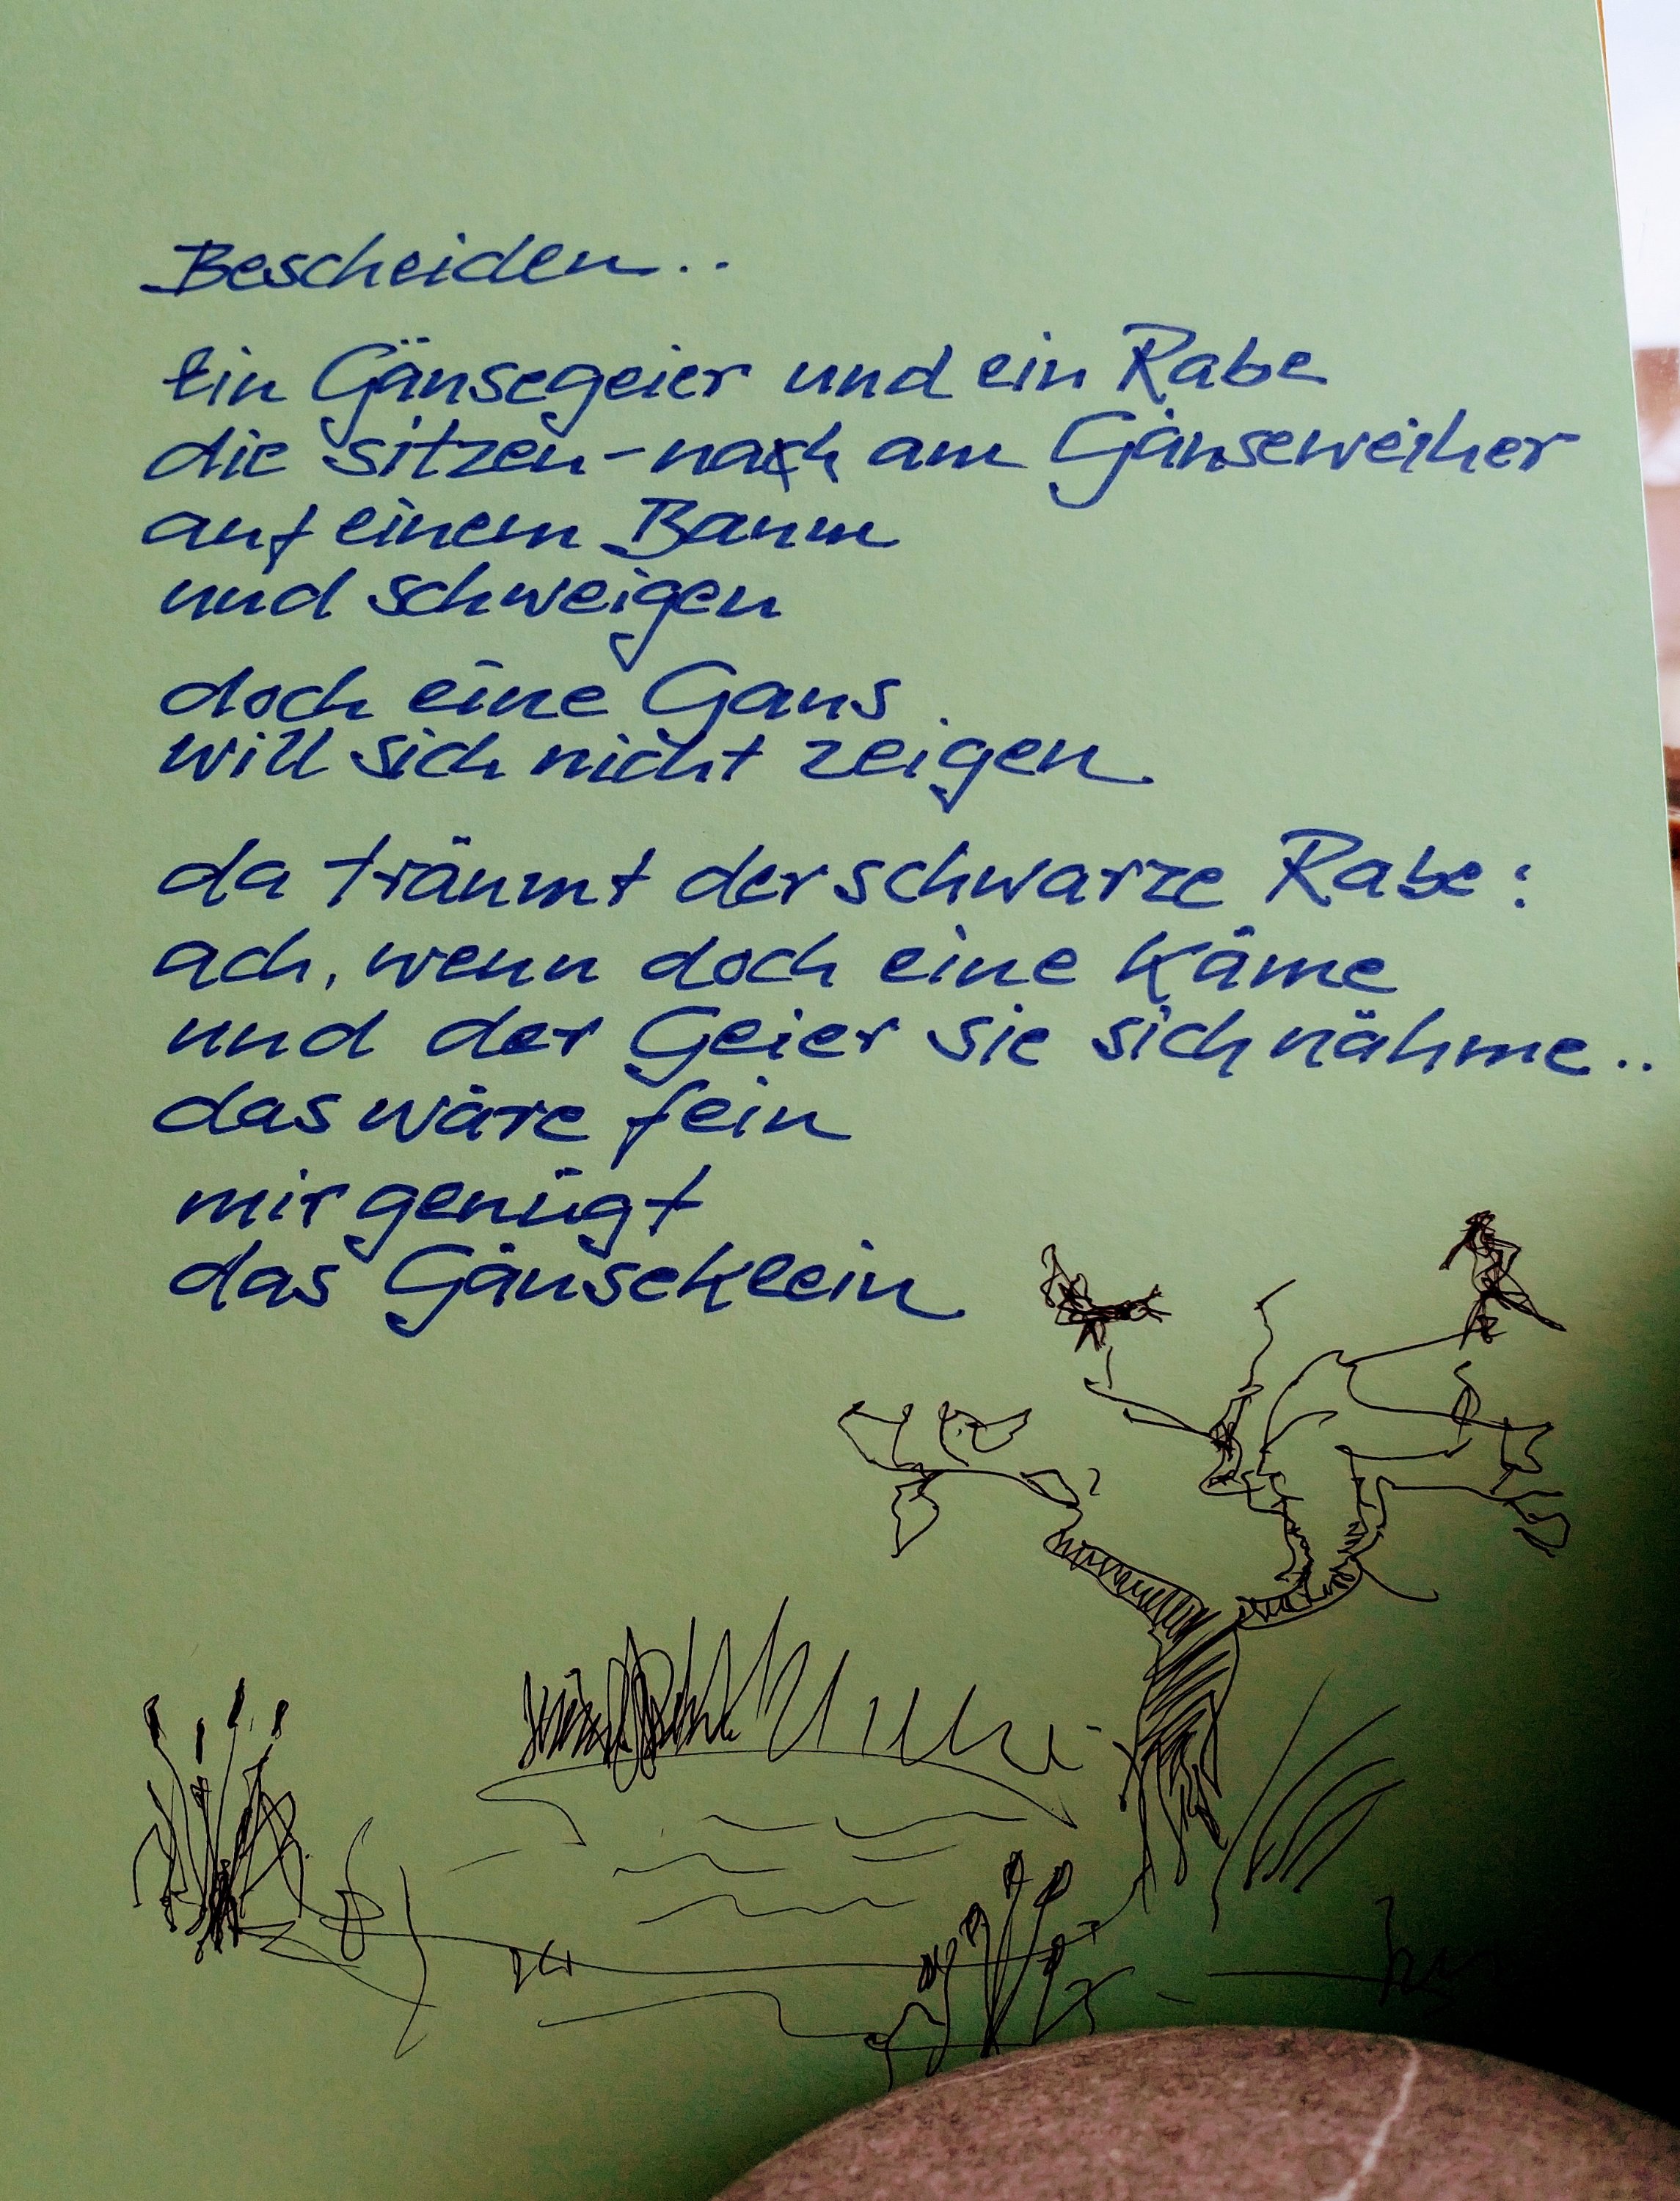 Bescheiden..
Ein Gänsegeier und ein Rabe
die sitzen - nah am Gänseweiher
auf einem Baum
und schweigen
doch eine Gans
will sich nicht zeigen
da träumt der schwarze Rabe:
ach, wenn doch eine käme
und der Geier sie sich nähme..
das wäre fein
mir genügt
das Gänseklein